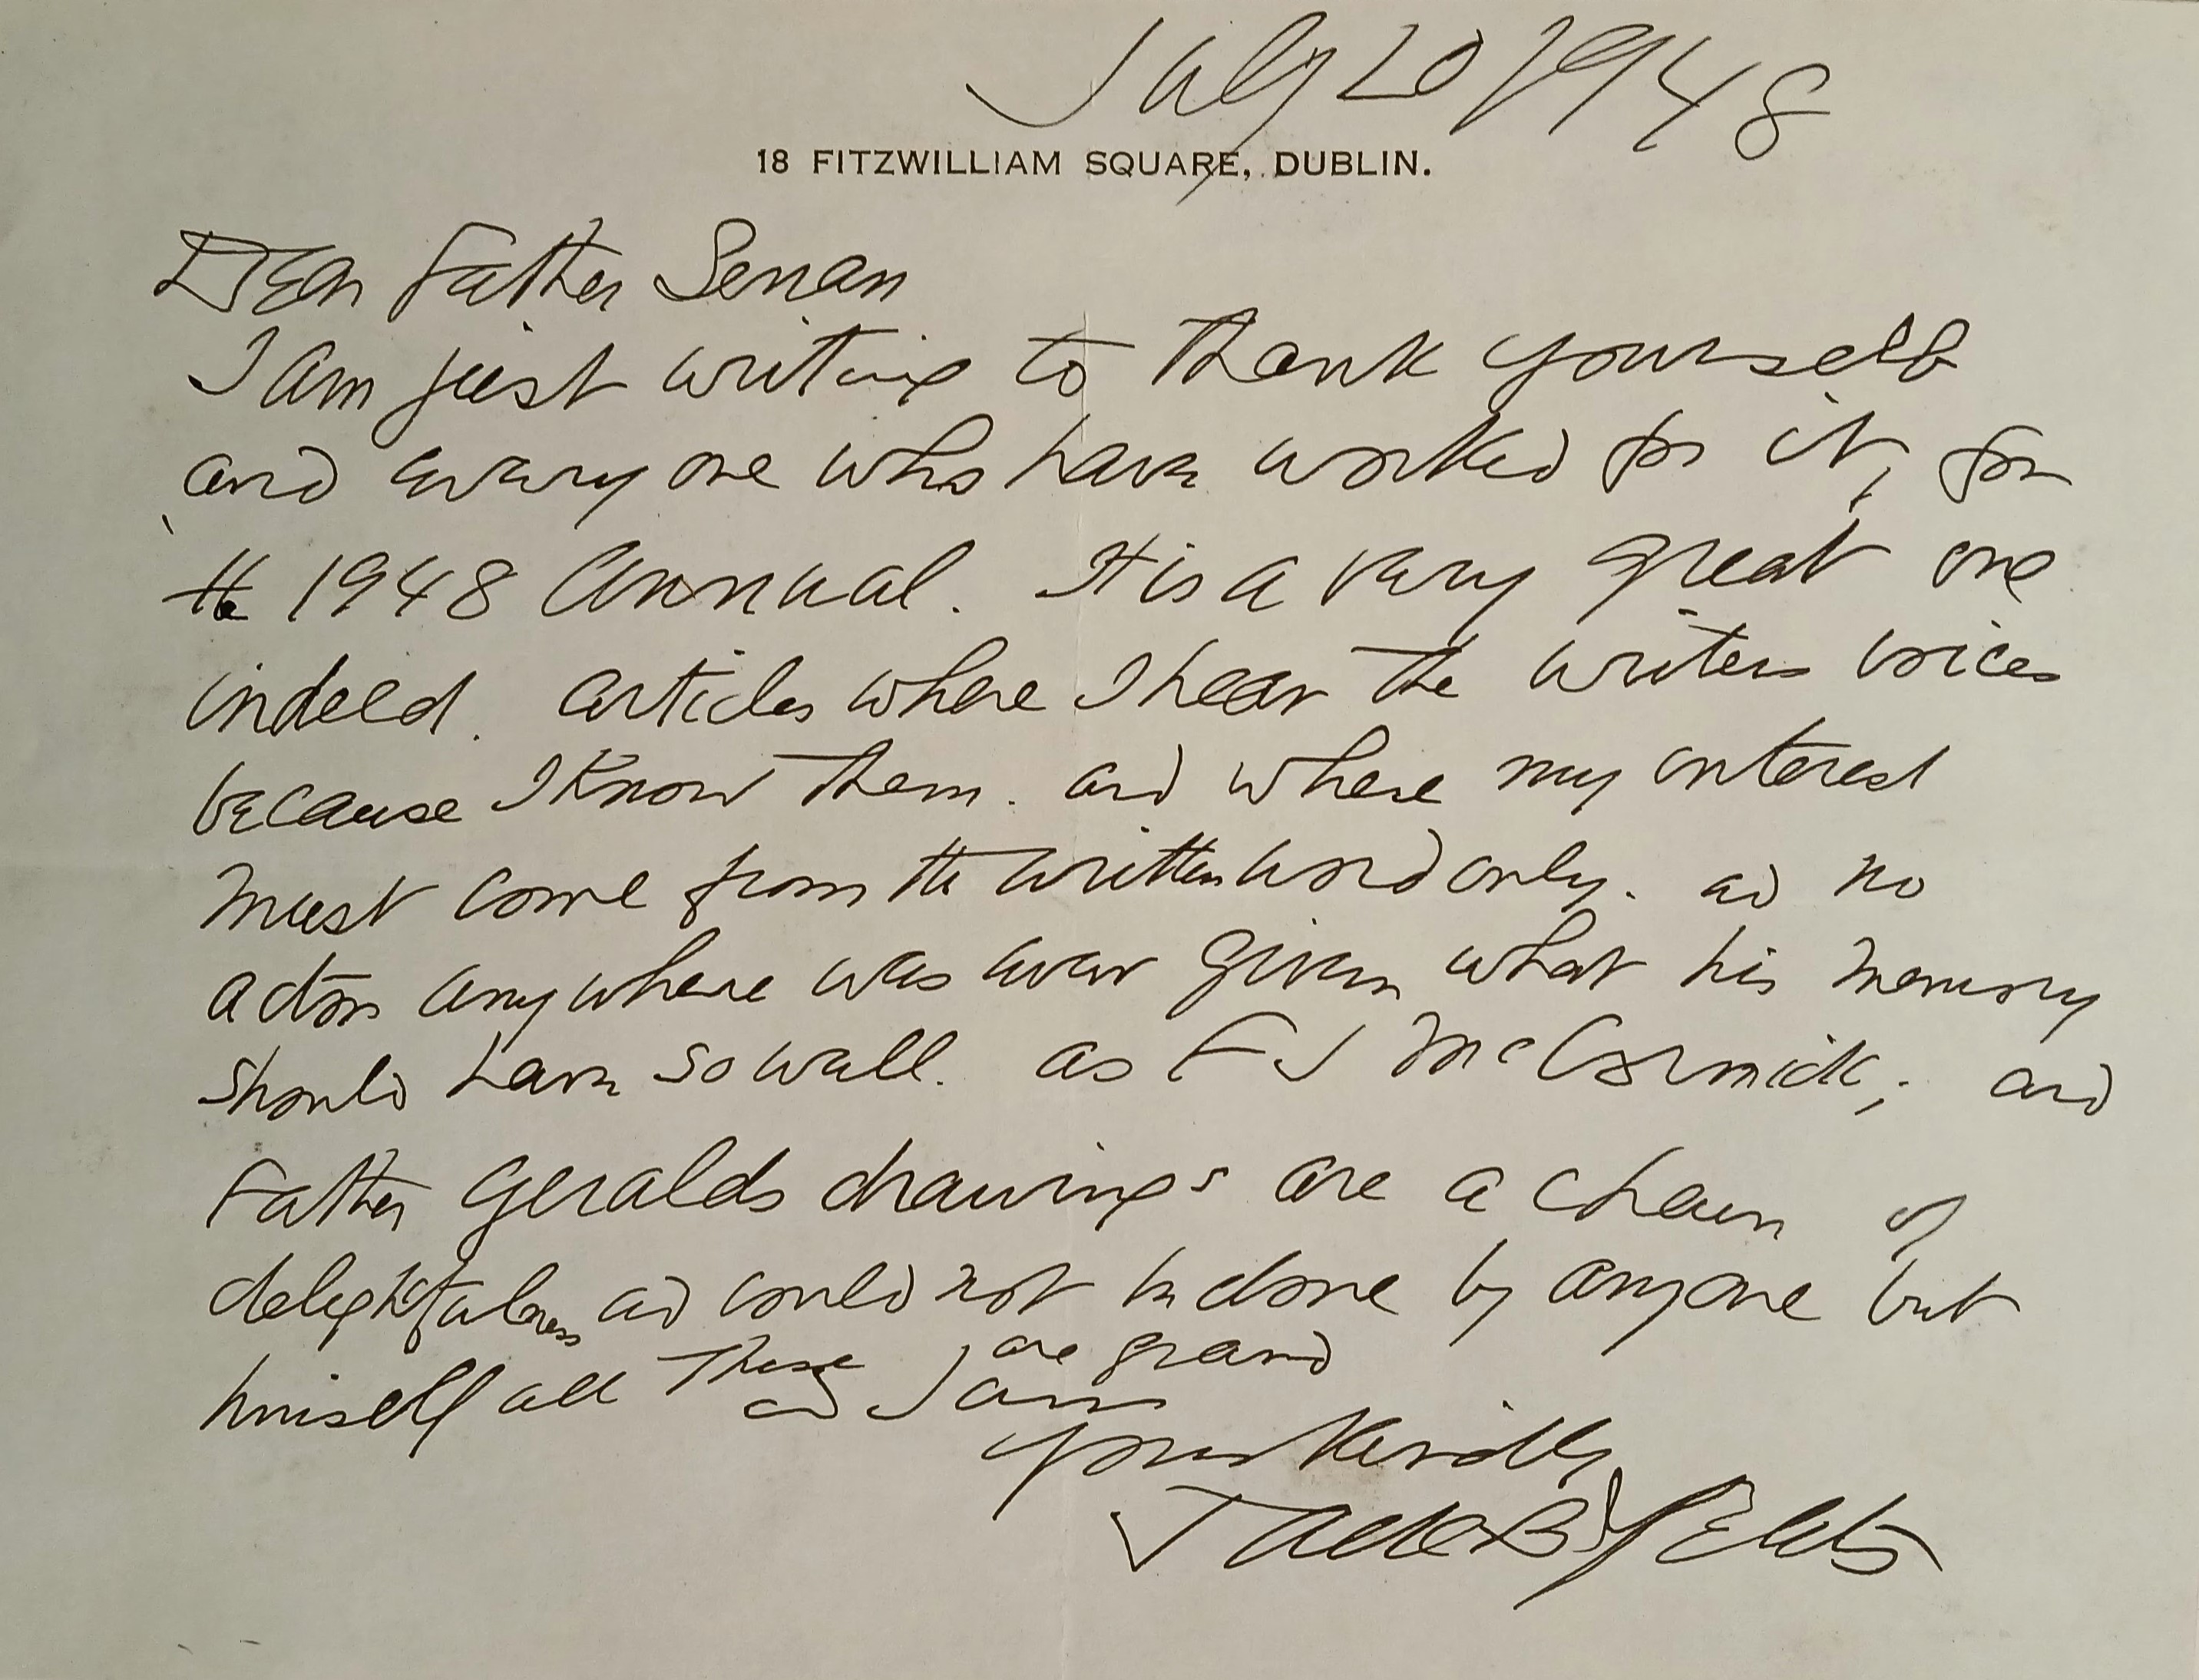 July 20 1948
18 FITZWILLIAM SQUARE, DUBLIN.
Dear Father Senan
I am just writing to thank yourself
and every one who have worked for it, for
the 1948 Annual. It is a very great one
indeed. articles where I hear the writers voices
because I know them. and where my interest
must come from the written word only. and no
actor anywhere was ever given what his memory
should have so well. as F J McCormick, and
Father Geralds drawings are a chain of
delightfulness and could not be done by anyone but
himself all these are grand
and I am
yours kindly
Jack B Yeats